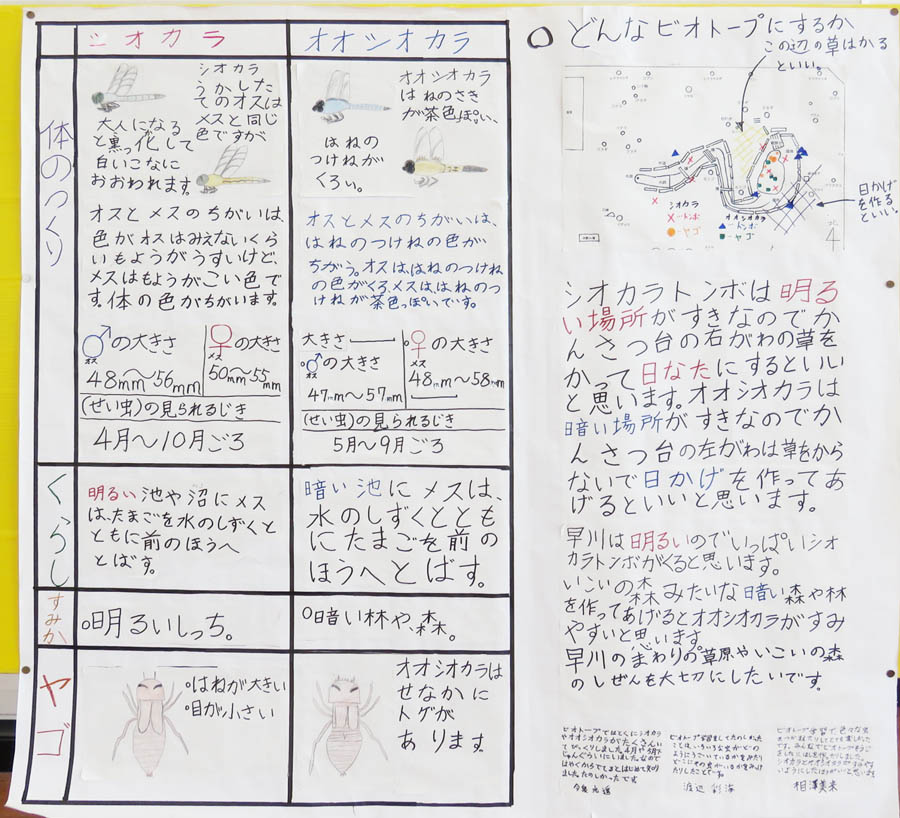 シオカラ
オオシオカラ
体のつくり
シオカラ
うかした
てのオスは
メスと同じ
色ですが
大人になる
と黒っ化して
白いこなに
おおわれます。
オスとメスのちがいは、
色がオスはみえないくら
いもようがうすいけど、
メスはもようがこい色で
す。体の色がちがいます。
♂の大きさ
オス
48mm〜56mm
♀の大きさ
メス
50mm〜55mm
(せい虫)の見られるじき
4月〜10月ごろ
オオシオカラ
はねのさき
が茶色っぽい、
はねの
つけねが
くろい。
オスとメスのちがいは、
はねのつけねの色が
ちがう。オスは、はねのつけね
の色がくろ、メスは、はねのつ
けねが茶色っぽいです。
大きさ
♂の大きさ
オス
47mm〜57mm
♀の大きさ
メス
48mm〜58mm
(せい虫)の見られるじき
5月〜9月ごろ
くらし
明るい池や沼にメス
は、たまごを水のしずくと
ともに前のほうへ
とばす。
暗い池にメスは、
水のしずくととも
にたまごを前の
ほうへとばす。
すみか
明るいしっち。
暗い林や、森。
ヤゴ
はねが大きい
目が小さい
オオシオカラは
せなかに
トゲが
あります。
どんなビオトープにするか
この辺の草はかる
といい。
日かげ
を作る
といい。
シオカラ
×…トンボ
●…ヤゴ
オオシオカラ
▲…トンボ
■…ヤゴ
4
シオカラトンボは明る
い場所がすきなのでか
んさつ台の右がわの草を
かって日なたにするといい
と思います。オオシオカラは
暗い場所がすきなのでか
んさつ台の左がわは草をから
ないで日かげを作ってあ
げるといいと思います。
早川は明るいのでいっぱいシオ
カラトンボがくると思います。
いこいの森みたいな暗い森や林
を作ってあげるとオオシオカラがすみ
やすいと思います。
早川のまわりの草原やいこいの森
のしぜんを大切にしたいです。
渡辺 彩海
相澤美来